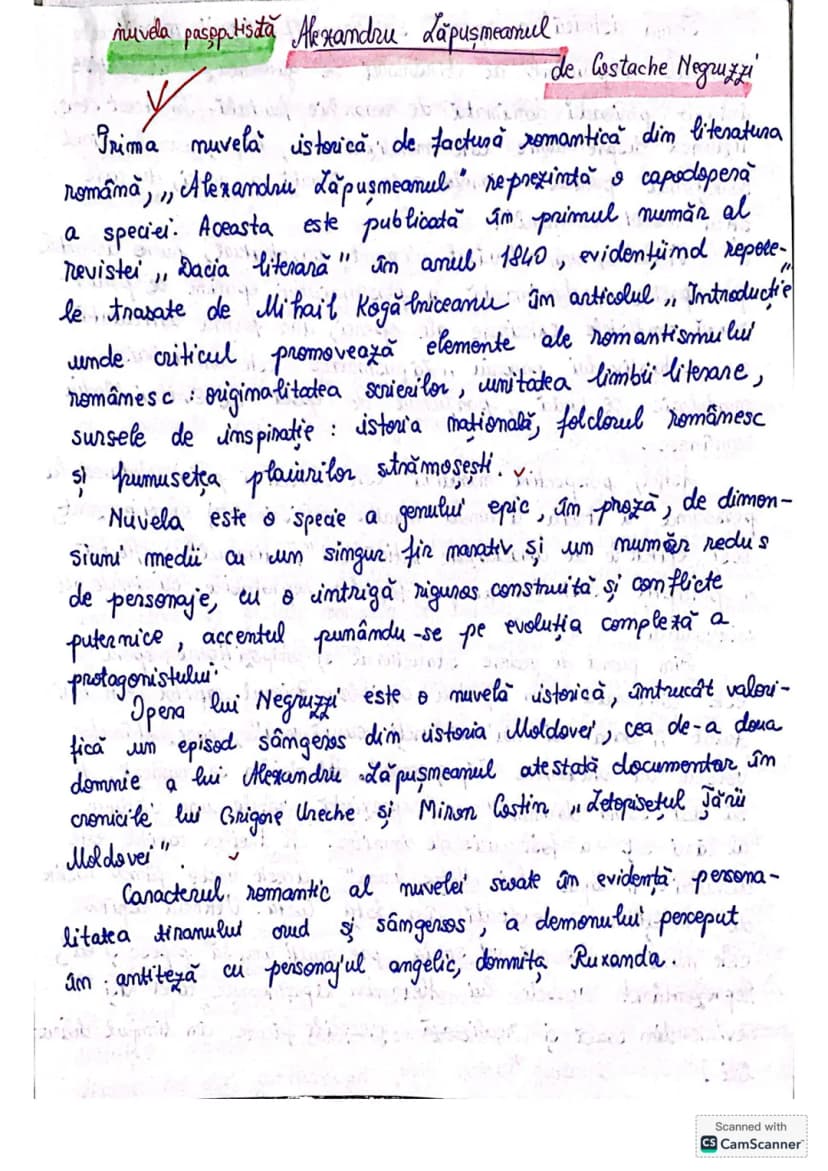 nuvela pașoptistă Alexandru Lăpușneanul
de Costache Negruzzi
Prima nuvelă istorică de factură romantică din literatura
română, „Alexandru Lăpușneanul" reprezintă o capodoperă
a speciei. Aceasta este publicată în primul număr al
revistei „Dacia literară" în anul 1840, evidențiind repere-
le trasate de Mihail Kogălniceanu în articolul „Introducție"
unde criticul promovează elemente ale romantismului
românesc: originalitatea scrierilor, unitatea limbii literare,
sursele de inspirație: istoria națională, folclorul românesc
și frumusețea plaiurilor strămoșești.
Nuvela este o specie a genului epic, în proză, de dimen-
siuni medii cu un singur fir narativ și un număr redus
de personaje, cu o intrigă riguros construită și conflicte
puternice, accentul punându-se pe evoluția complexă a
protagonistului.
Opera lui Negruzzi este o nuvelă istorică, întrucât valori-
fică un episod sângeros din istoria Moldovei, cea de-a doua
domnie a lui Alexandru Lăpușneanul atestată documentar în
cronicile lui Grigore Ureche și Miron Costin „Letopisețul Țării
Moldovei".
Caracterul romantic al nuvelei scoate în evidență persona-
litatea tiranului crud și sângeros, a demonului perceput
în antiteză cu personajul angelic, domnița Ruxanda.
Scanned with
CS CamScanner